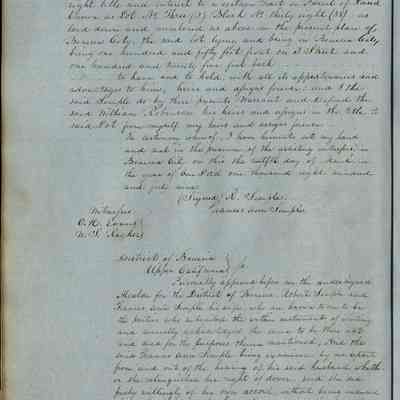 right title and interest to a certain Tract or Parcel of Land
Known as Lot No Three (3) Block No thirty eight (38) as
laid down and numbered as above in the present plan of
Benicia City, the said lot lying and being in Benicia City
being one hundred and fifty feet front on D Street and
one hundred and twenty five feet back
to have and to hold, with all its appurtenances and
advantages to him, heirs and assigns forever, and I the
said Semple do by these presents Warrant and defend the
said William Robinson his heirs and assigns in the title to
said Lot from myself my heirs and assigns forever
In testimony whereof, I have hereunto set my hand
and seal in the presence of the attesting witnesses in
Benicia Cal on this the twelfth day of March in
the year of our Lord one thousand eight hundred
and forty nine
(Signed) R. Semple
Frances Ann Semple
Witnesses
District of Benicia
Upper California
Personally appeared before me the undersigned
Alcalde for the District of Benicia Robert Semple and
Frances Ann Semple his wife, who are known to me to be
the parties who executed the within instrument of writing
and severally acknowledged the same to be their act
and deed for the purposes therein mentioned, And the
said Frances Ann Semple being examined by me apart
from and out of the hearing of her said husband whether
she relinquishes her right of dower, said she did
freely willingly of her own accord, without being induced